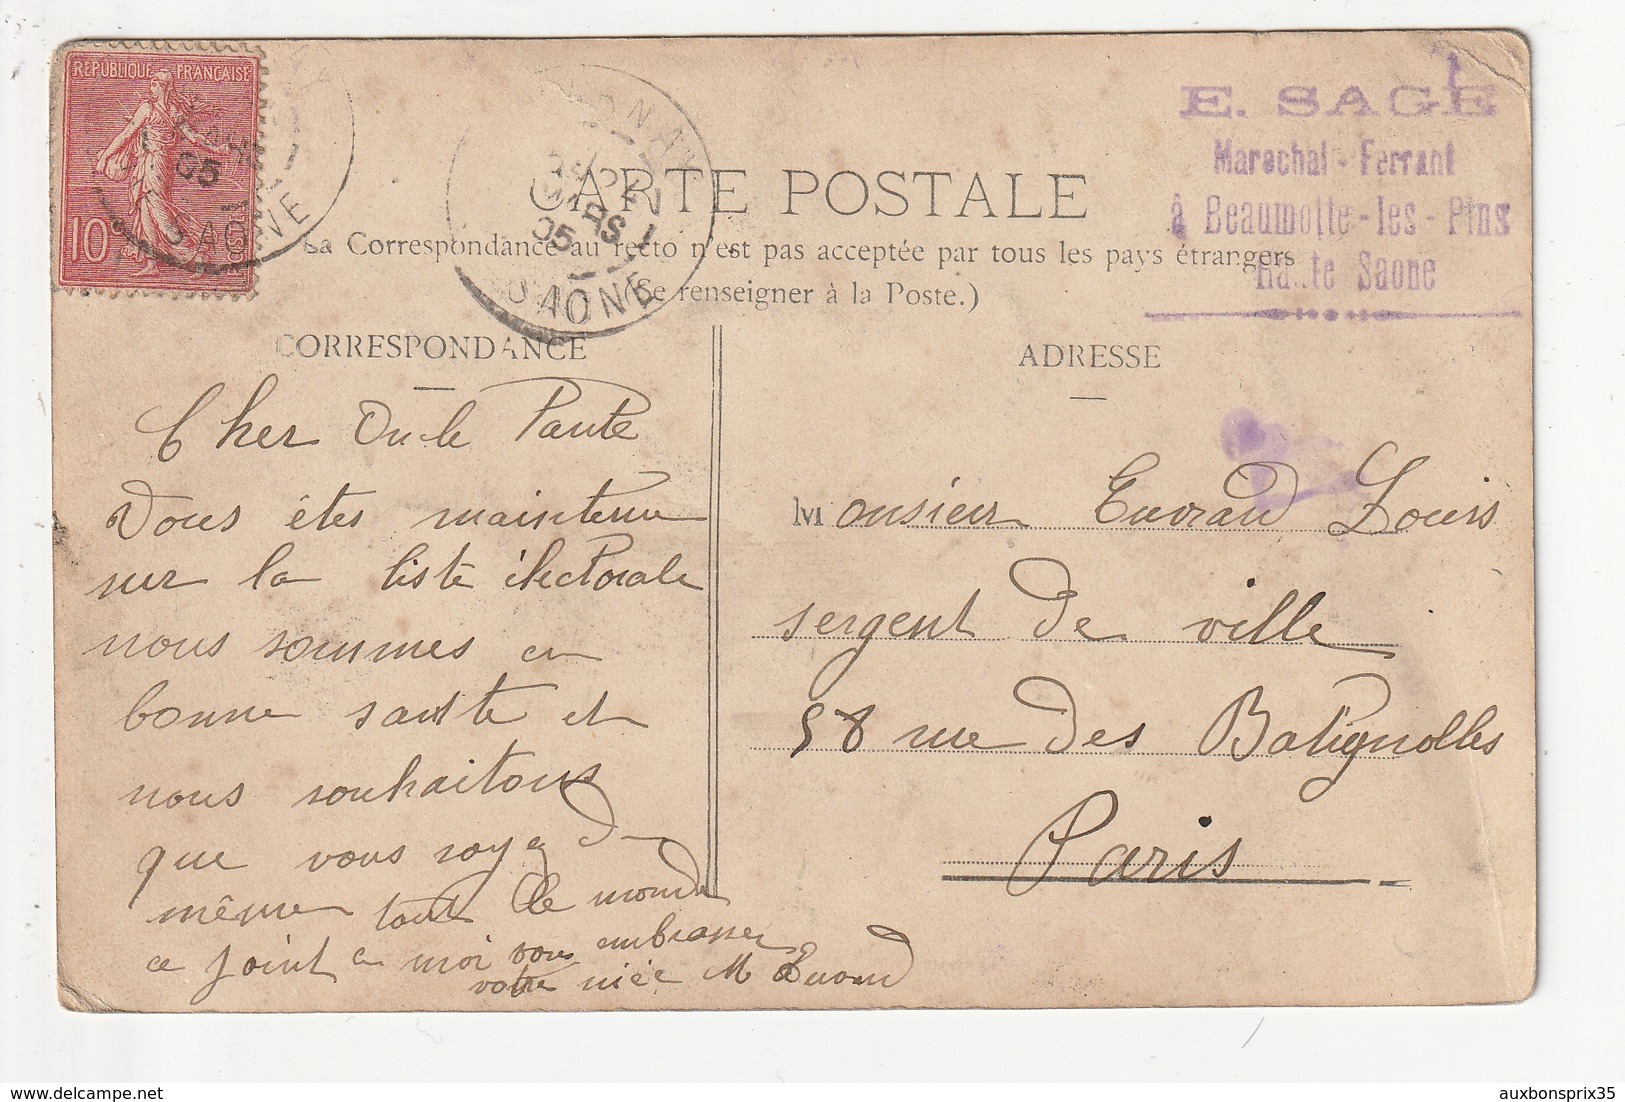 REPUBLIQUE FRANÇAISE
10
POSTES
05
MARS
05
SAONE
E. SAGE
Marechal - Ferrant
à Beaumotte-les-Pins
Haute Saone
CARTE POSTALE
La Correspondance au recto n'est pas acceptée par tous les pays étrangers
(Se renseigner à la Poste.)
CORRESPONDANCE
Cher Oncle Paute
Vous êtes maintenu
sur la liste électorale
nous sommes en
bonne santé et
nous souhaitons
que vous soyez de
même tout le monde
ce joint a moi vous embrasser
votre nièce M Euvrard
ADRESSE
Monsieur Euvrard Louis
sergent de ville
58 rue des Batignolles
Paris
auxbonsprix35